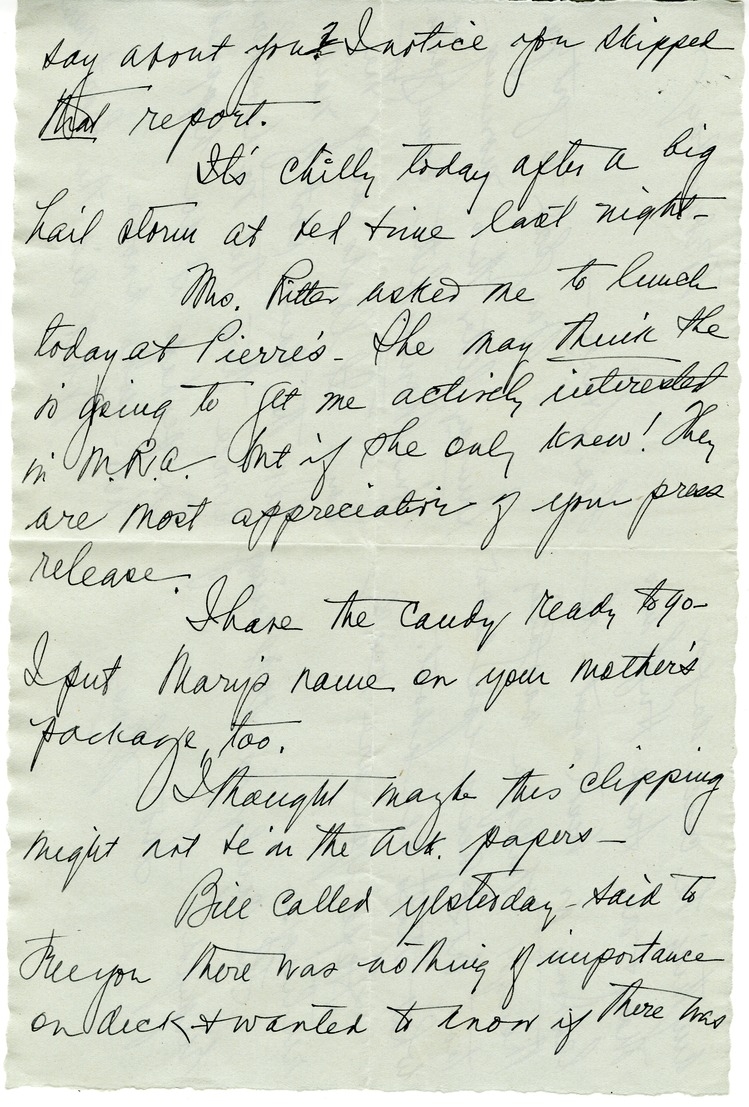 say about you? I notice you skipped
that report.
It's chilly today after a big
hail storm at bed time last night-
Mrs. Ritter asked me to lunch
today at Pierre's- She may think she
is going to get me actively interested
in M.R.A. but if she only knew! They
are most appreciative of your press
release.
I have the candy ready to go-
I put Mary's name on your mother's
package, too.
I thought maybe this clipping
might not be in the Ark. papers-
Bill called yesterday- said to
tell you there was nothing of importance
on deck & wanted to know if there was